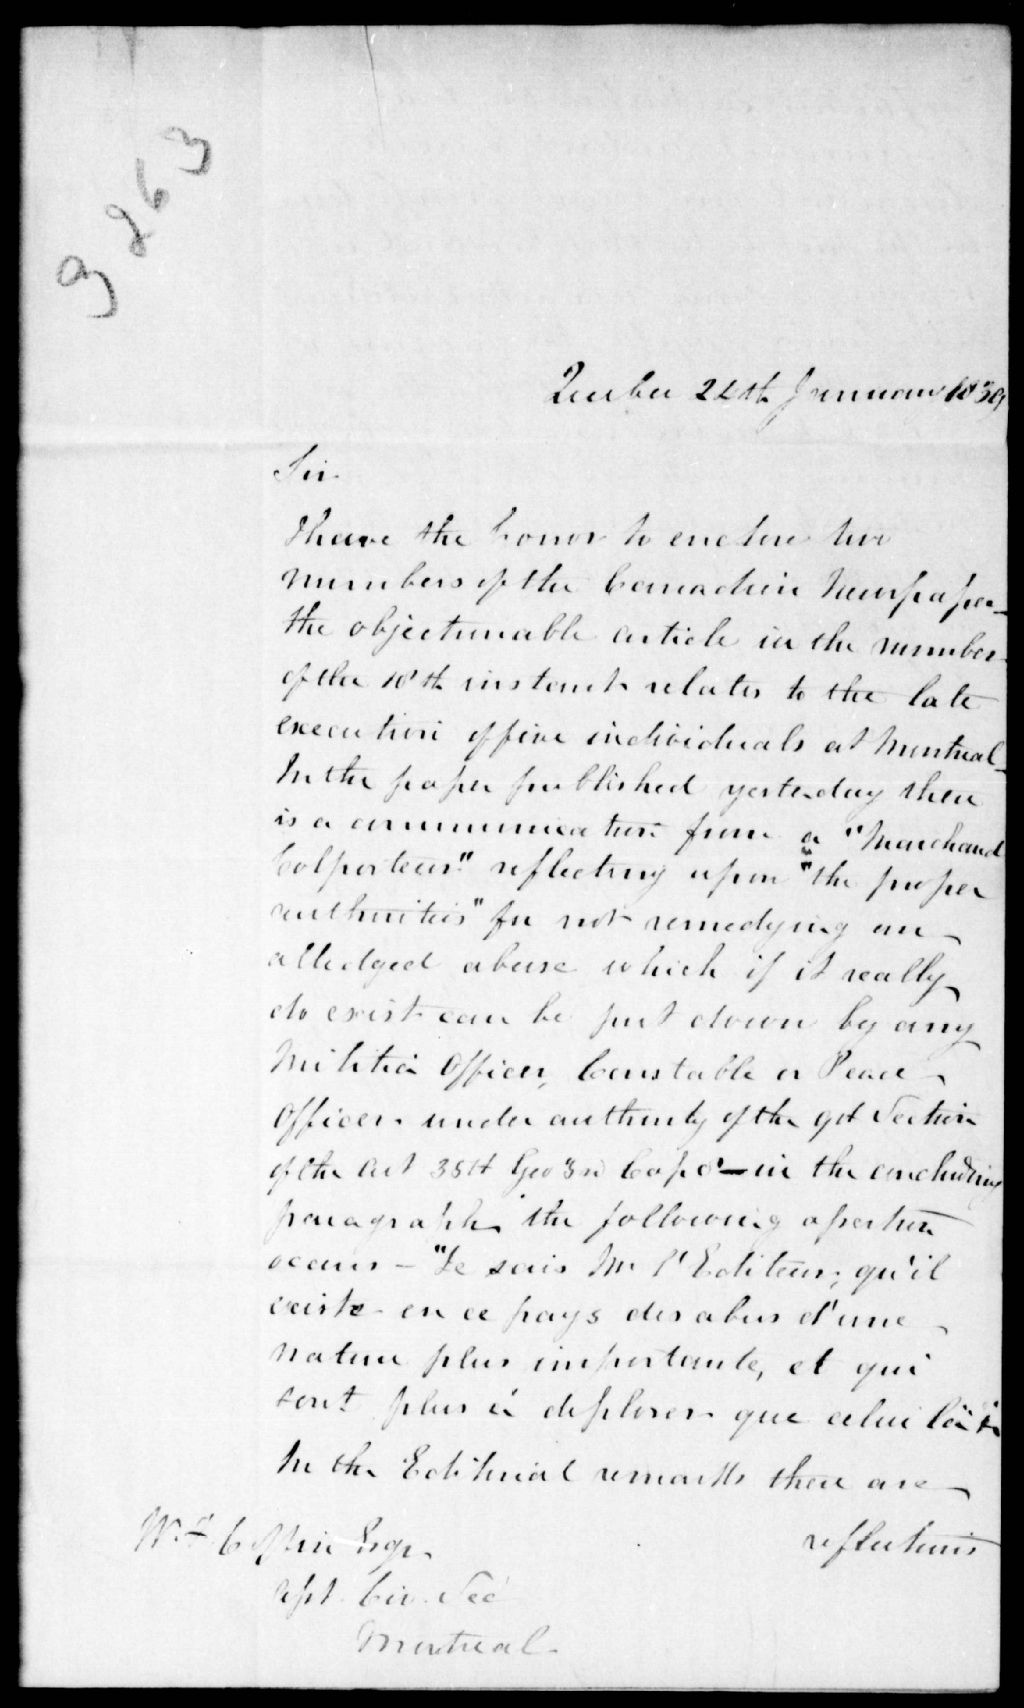 9863
Quebec 24th January 1839
Sir
I have the honor to enclose two
numbers of the Canadien Newspaper
the objectionable article in the number
of the 18th instant relates to the late
execution of five individuals at Montreal
In the paper published yesterday there
is a communication from a "Marchand
Colporteur" reflecting upon "the proper
authorities" for not remedying an
alledged abuse which if it really
do exist can be put down by any
Militia Officer, Constable or Peace
Officer under authority of the 9th Section
of the Act 35th Geo 3rd Cap 8 — in the concluding
paragraph the following assertion
occurs — "Je sais Mr l'Editeur, qu'il
existe en ce pays des abus d'une
nature plus importante, et qui
sont plus à deplorer que celui là"
In the Editorial remarks there are
reflections
Wm Coffin Esqr
Asst Civ. Sec
Montreal